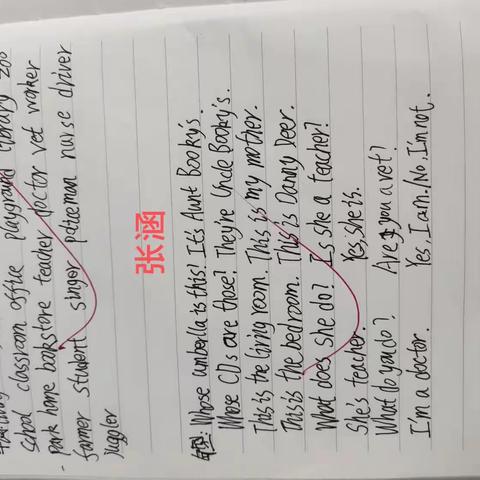 playground library zoo
school classroom office
park home bookstore teacher doctor vet worker
farmer student singer policeman nurse driver
juggler
张涵
句型: Whose umbrella is this? It's Aunt Booky's.
Whose CDs are those? They're Uncle Booky's.
This is the living room. This is my mother.
This is the bedroom. This is Danny Deer.
What does she do? Is she a teacher?
She's teacher. Yes, she is.
What do you do? Are you a vet?
I'm a doctor. Yes, I am. / No, I'm not.